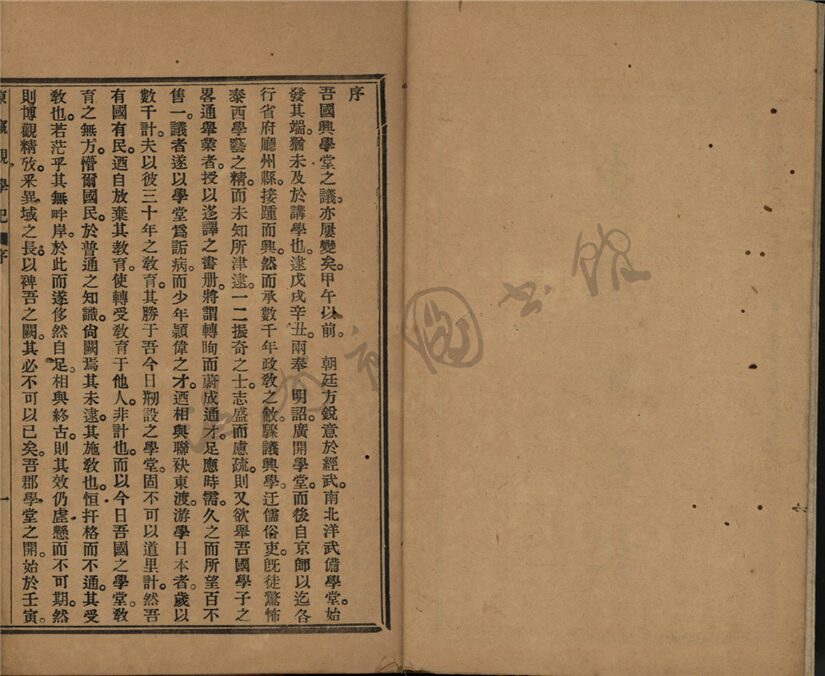 序
吾國興學堂之議。亦屢變矣。甲午以前。　朝廷方銳意於經武。南北洋武備學堂。始
發其端。猶未及於講學也。逮戊戌辛丑。兩奉　明詔。廣開學堂。而後自京師以迄各
行省府廳州縣。接踵而興。然而承數千年政敎之敝。驟議興學。迂儒俗吏。旣徒驚怖
泰西學藝之精。而未知所津逮。一二振奇之士。志盛而慮疏。則又欲舉吾國學子之
畧通舉業者。授以迻譯之書册。將謂轉眴而蔚成通才。足應時需。久之而所望百不
售一。議者遂以學堂爲詬病。而少年穎偉之才。迺相與聯袂東渡。游學日本者。歲以
數千計。夫以彼三十年之敎育。其勝于吾今日剏設之學堂。固不可以道里計。然吾
有國有民。迺自放棄其敎育。使轉受敎育于他人。非計也。而以今日吾國之學堂。敎
育之無方。懵爾國民。於普通之知識。尙闕焉其未逮。其施敎也。恒扞格而不通。其受
敎也。若茫乎其無畔岸。於此而遂侈然自足。相與終古。則其效仍虛懸而不可期。然
則博觀精攷。釆異域之長。以裨吾之闕。其必不可以已矣。吾郡學堂之開。始於壬寅。
東瀛觀學記　序　一